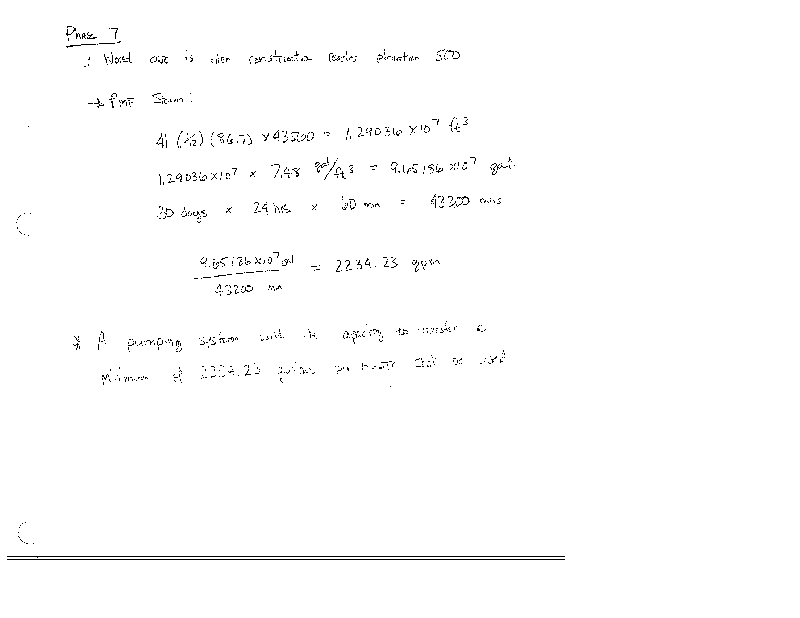 PHASE 7
∴ Worst case is when construction reaches elevation 500
→ PMF Storm:
41 (1/2) (86.7) × 43560 = 1.29036 × 10^7 ft^3
1.29036 × 10^7 × 7.48 gal/ft^3 = 9.65186 × 10^7 gal.
30 days × 24 hrs × 60 min = 43200 mins
9.65186 × 10^7 gal
43200 min
= 2234.23 gpm
* A pumping system with the capacity to transfer a
minimum of 2234.23 gallons per minute be used